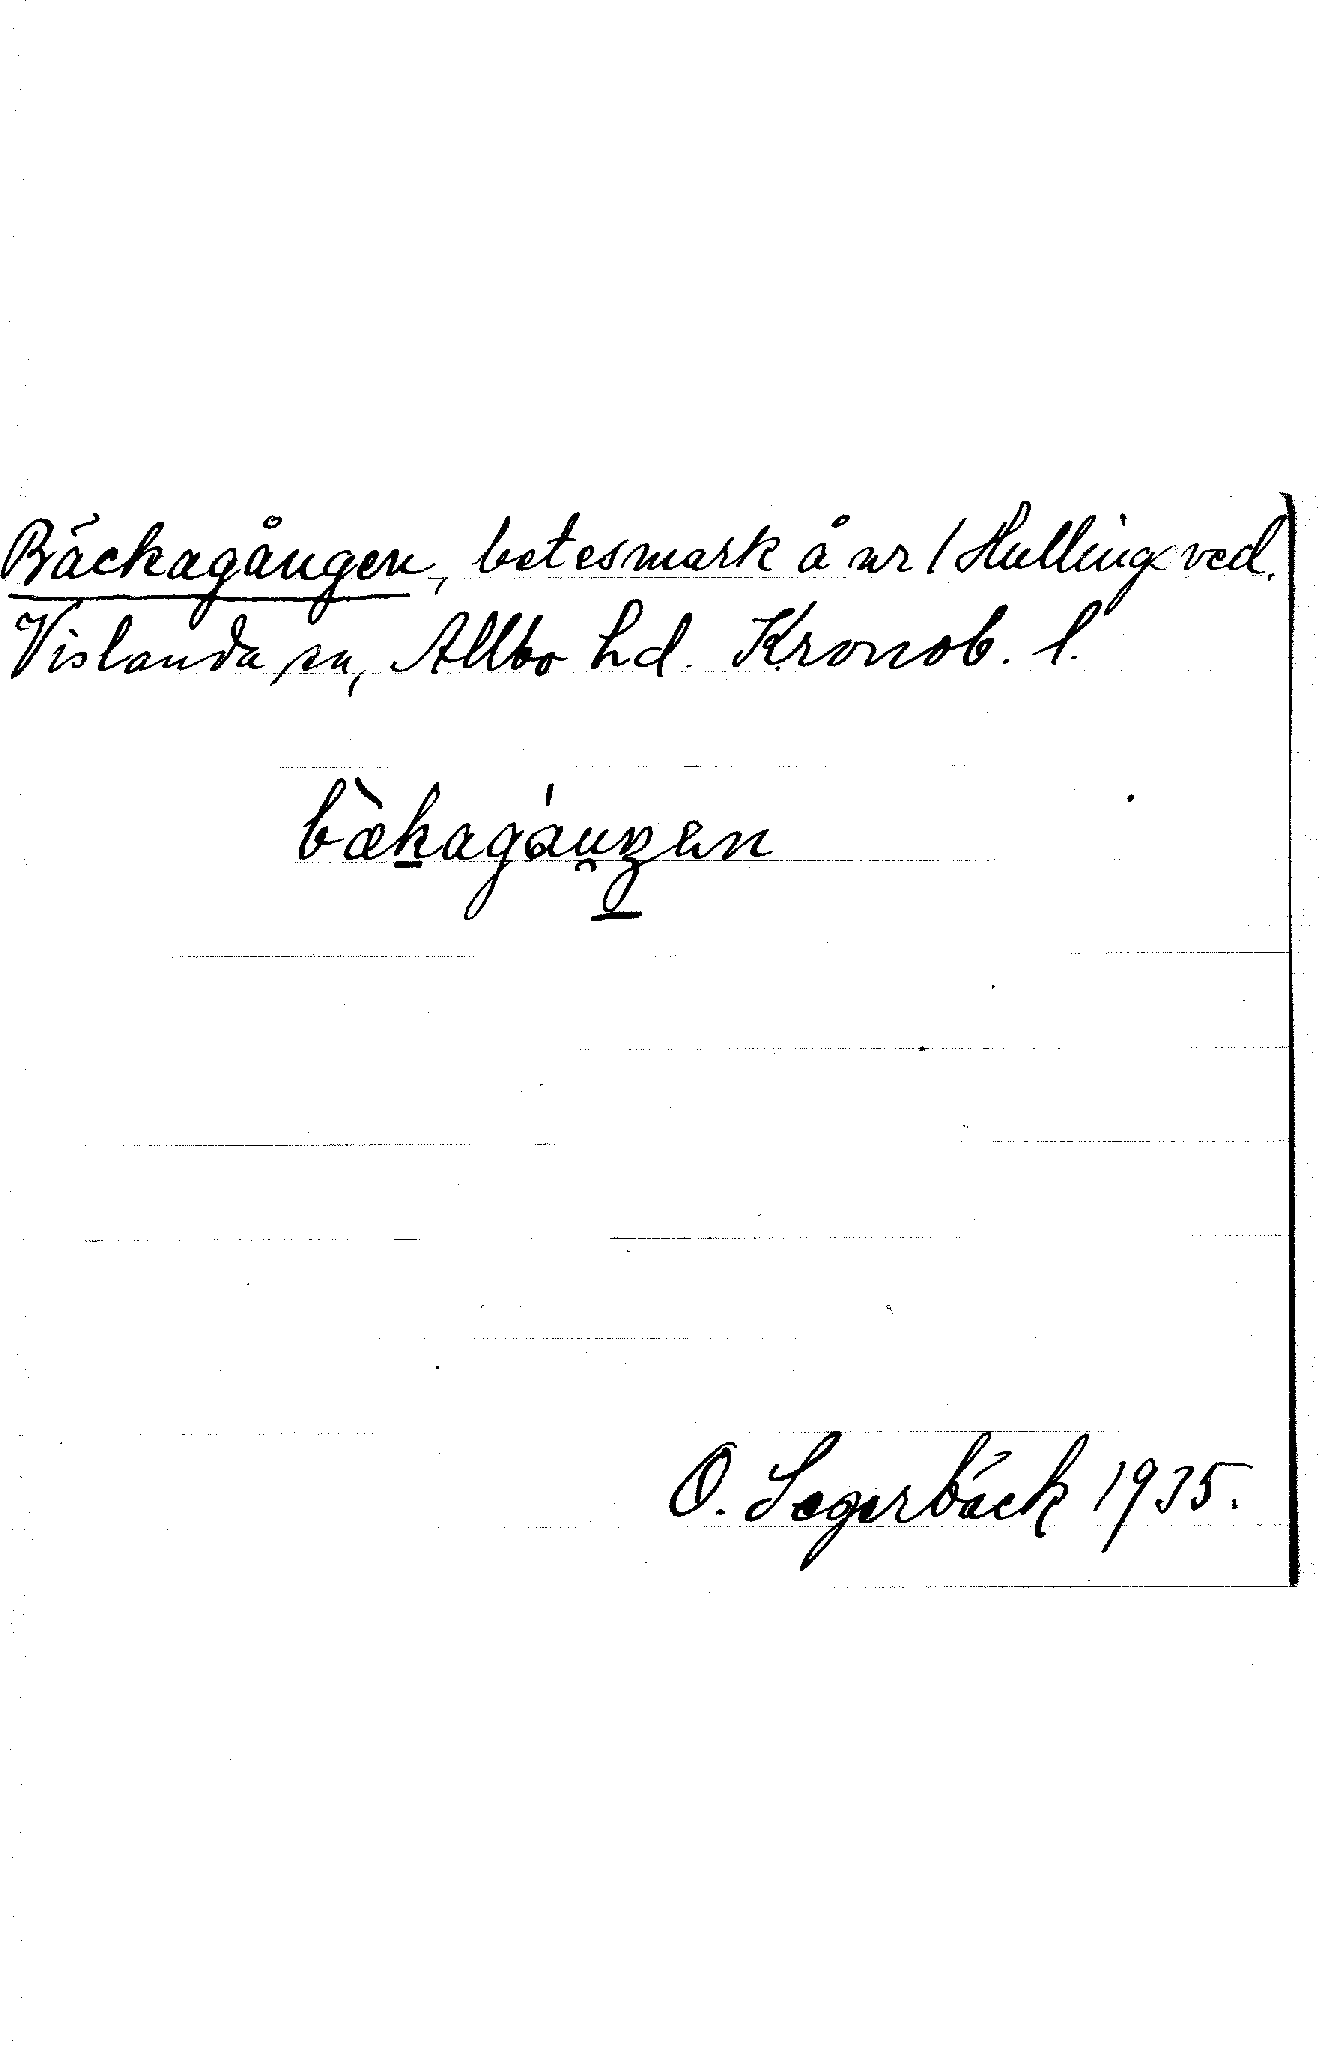 Bäckagången, betesmark å nr 1 Hullingsved.
Vislanda sn, Allbo hd. Kronob. l.
bæ̀kagàu̯ŋen
O. Segerbäck 1935.